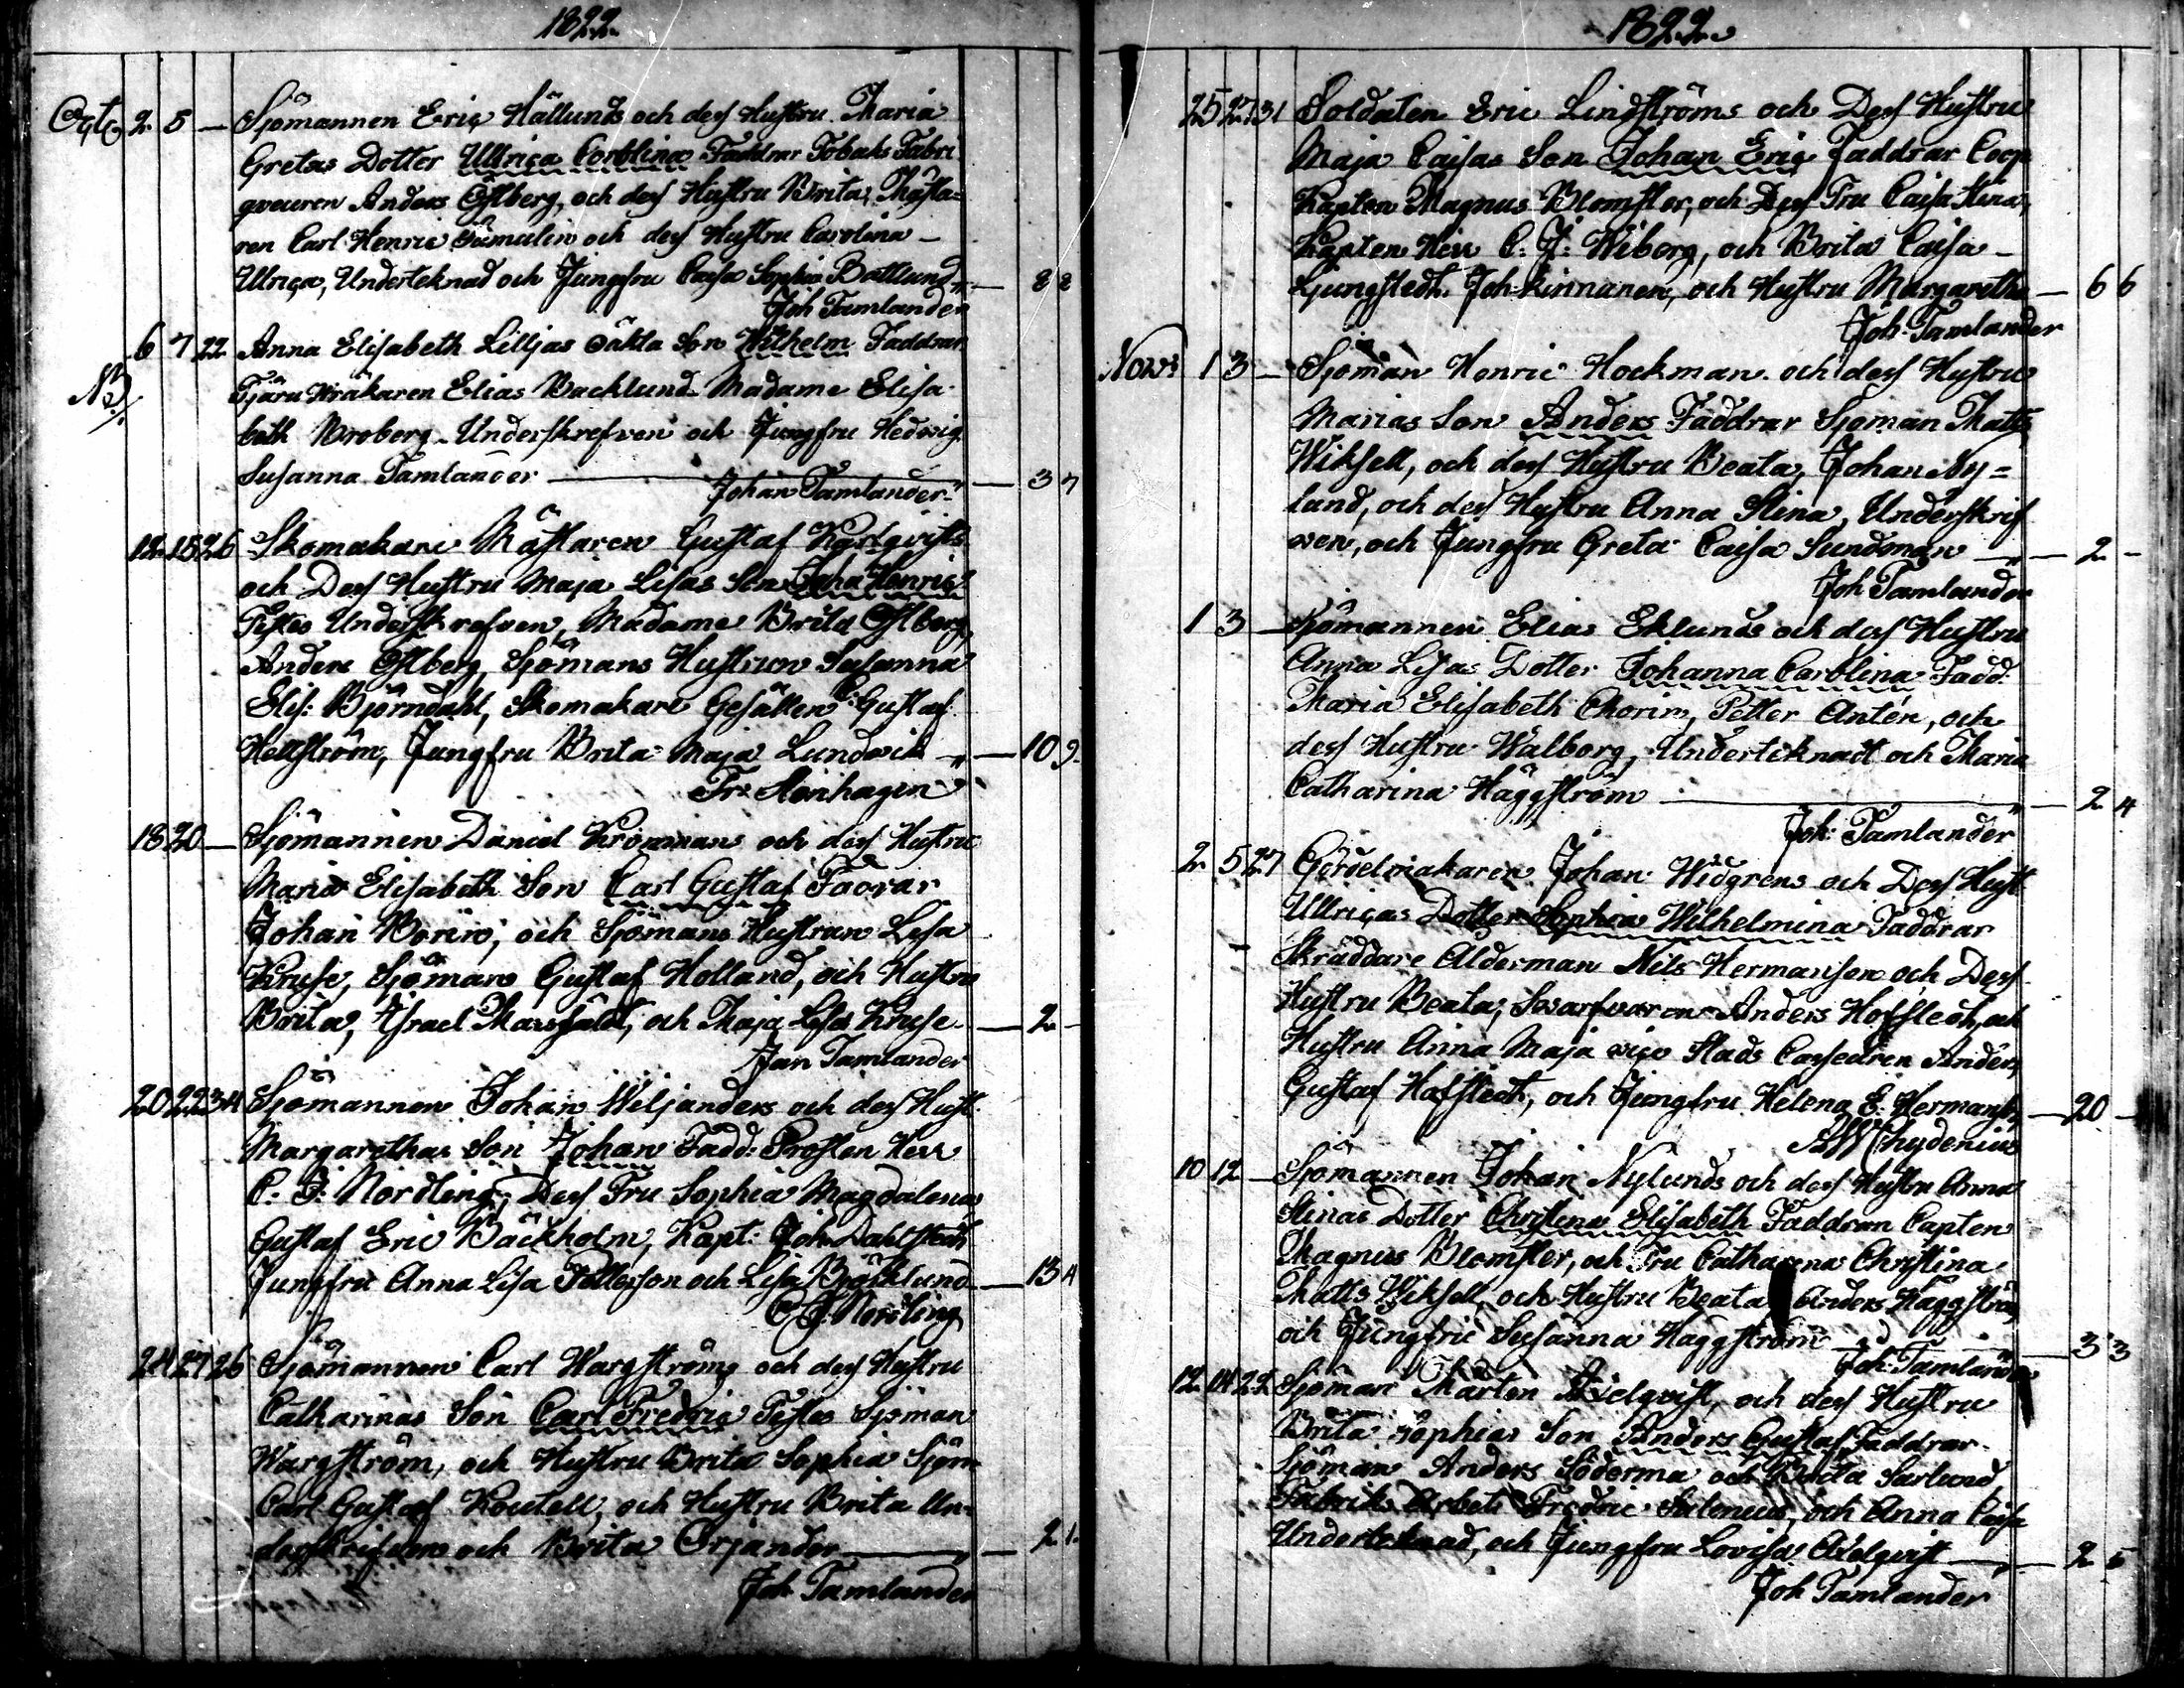 1822
Oct 2 5 — Sjömannen Eric Hällunds och dess Hustru Maria
Gretas Dotter Ullrica Carolina Faddrar Tobaks Fabri
queuren Anders Östberg, och dess Hustru Brita, Mästa=
ren Carl Henric och dess Hustru Carolina —
Ulrica, Underteknad och Jungfru Caisa Sophia Battlund — 8 2
Joh Tamlander
6 7 22 Anna Elisabeth Lilljas oäkta Son Wilhelm Faddrar
NB Tjäru Wräkaren Elias Backlund Madame Elisa
beth Broberg Underskrefven och Jungfru Hedvig
Susanna Tamlander — 3 7
Johan Tamlander
12 15 26 Skomakare Mästaren Gustaf Karlqvists
och Dess Hustru Maja Lisas Son Joha Henric
Testes Underskrefven, Madame Brita Östberg,
Anders Östberg, Sjömans Hustrun Susanna
Elis: Björndahl, Skomakare Gesällen Gustaf
Hellström, Jungfru Brita Maja Lundvik — 10 9
Fr: Stenhagen
18 20 — Sjömannen Daniel Kromans och dess Hustru
Maria Elisabeth Son Carl Gustaf Fadrar
Johan Borin, och Sjömans Hustrun Lisa
Kruse, Sjöman Gustaf Holland, och Hustru
Brita, Israel och Maja Lisa Kruse — 2 —
Jan Tamlander
20 22 34 Sjömannen Johan Wiljanders och dess Hust
Margarethas Son Johan Fadd: Prosten Herr
C. J. Nordling, Dess Fru Sophia Magdalena,
Gustaf Eric Bäckholm, Kapt: Joh Dahlstedt
Jungfru Anna Lisa Pettersson och Lisa Björklund — 13 4
C J. Nordling
24 27 26 Sjömannen Carl Wargströms och dess Hustru
Catharinas Son Carl Fredric Testes Sjöman
Wargström, och Hustru Brita Sophia Sjöm
Carl Gustaf och Hustru Brita Un=
derskrifven och Brita Orjander — 2 1
Joh Tamlander
1822
25 27 31 Soldaten Eric Lindströms och Dess Hustru
Maja Caisas Son Johan Eric Faddrar Coop
Kapten Magnus Blomster, och Dess Fru Caisa Stina,
Kapten Herr C: J: Wiberg, och Brita Caisa —
Ljungstedt. Joh: Kinnanen, och Hustru Margaretha — 6 6
Joh: Tamlander
Nov: 1 3 — Sjöman Henric Hockman och dess Hustru
Marias Son Anders Faddrar Sjöman Matts
Wiksell, och dess Hustru Beata, Johan Ny=
lund, och dess Hustru Anna Stina, Underskrif
ven, och Jungfru Greta Caisa Sundman — 2 —
Joh Tamlander
1 3 — Sjömannen Elias Eklunds och dess Hustru
Anna Lisas Dotter Johanna Carolina Fadd:
Maria Elisabeth Chorin, Petter Antén, och
dess Hustru Walborg, Underteknadt och Maria
Catharina Häggström — 2 4
Joh: Tamlander
2 5 27 Gördelmakaren Johan Widgrens och Dess Hust
Ullricas Dotter Sophia Wilhelmina Faddrar
Skräddare Ålderman Nils Hermanson och Dess
Hustru Beata, Swarfvaren Anders Hofstedt, och
Hustru Anna Maja vice Stads Casseuren Anders
Gustaf Hofstedt, och Jungfru Helena E. Hermanson — 20 —
A W Chydenius
10 12 — Sjömannen Johan Nylunds och dess Hustru Anna
Stinas Dotter Christina Elisabeth Faddran Capten
Magnus Blomster, och Fru Catharina Christina,
Matts Wiksell, och Hustru Beata Anders Häggström
och Jungfru Susanna Haggström — 3 3
Joh: Tamlander
12 14 22 Sjöman Mårten Axelqvist, och dess Hustru
Brita Sophias Son Anders Gustaf Faddrar
Sjöman Anders Söderma och Brita Sarlund,
Fabriks Arbets Fredric och Anna Caisa
Underteknad, och Jungfru Lovisa Axelqvist — 2 5
Joh Tamlander